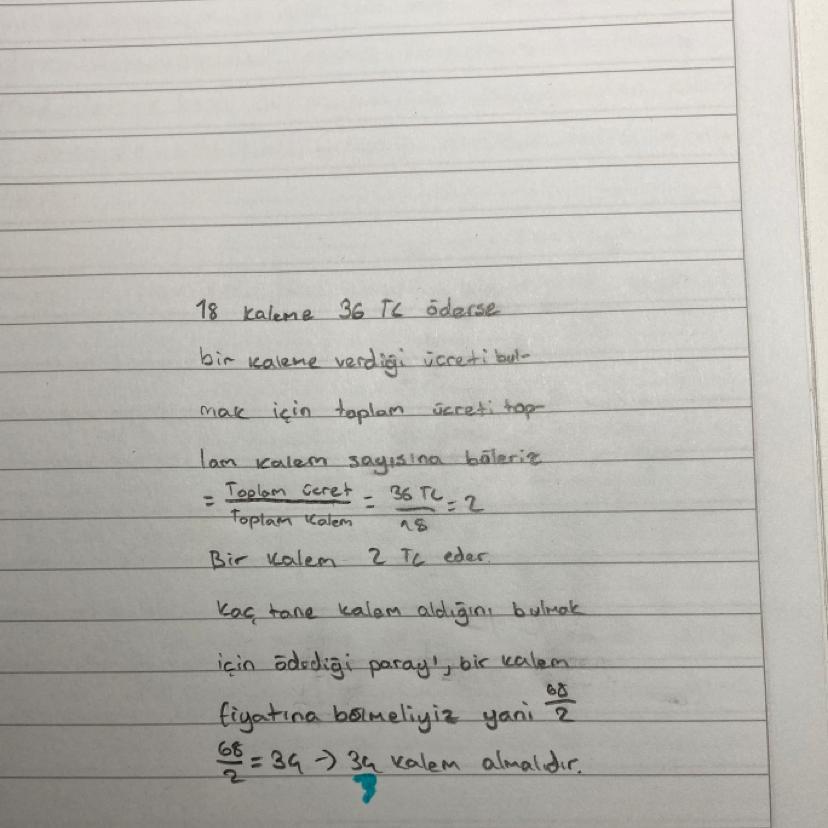 18 kaleme 36 TL öderse
bir kaleme verdiği ücreti bul-
mak için toplam ücreti top-
lam kalem sayısına böleriz
= Toplam ücret / Toplam kalem = 36 TL / 18 = 2
Bir kalem 2 TL eder.
Kaç tane kalem aldığını bulmak
için ödediği parayı, bir kalem
fiyatına bölmeliyiz yani 68/2
68/2 = 34 → 34 kalem almalıdır.